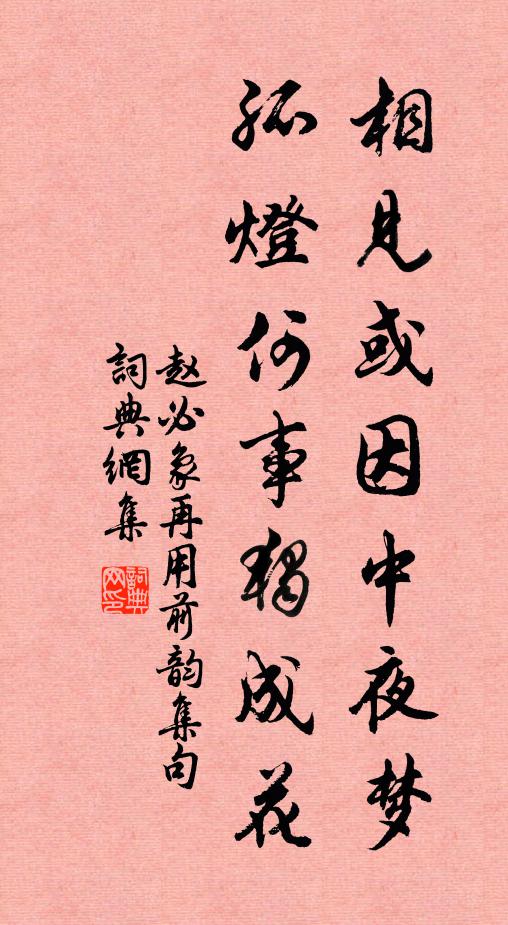 相見或因中夜梦
孤燈何事獨成花
赵必象再用前韵集句
詞典網集
詞典网印